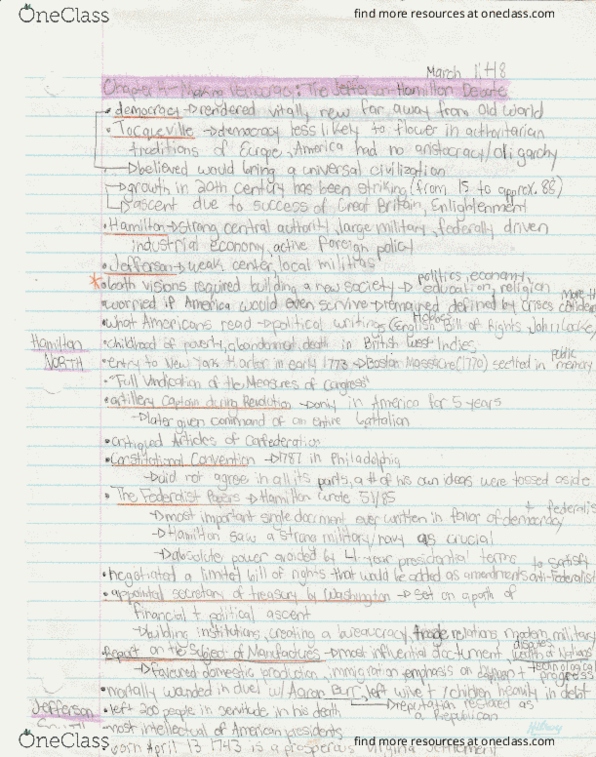 OneClass
find more resources at oneclass.com
March 1, H8
Chapter 4 - Making Democracy: The Jefferson-Hamilton Debate
• democracy → rendered vitally new far away from Old World
• Tocqueville → democracy less likely to flower in authoritarian
traditions of Europe, America had no aristocracy/oligarchy
→ believed would bring a universal civilization
→ growth in 20th century has been striking (from 15 to approx. 88)
→ ascent due to success of Great Britain, Enlightenment
• Hamilton → strong central authority, large military, federally driven
industrial economy, active foreign policy
• Jefferson → weak center, local militias
politics, economy,
* • both visions required building a new society → education, religion
• worried if America would even survive → remained defined by crises
• what Americans read → political writings (English Bill of Rights, John Locke,
Hobbes
Hamilton
NORTH
• childhood of poverty, abandonment, death in British West Indies
• entry to New York Harbor in early 1773 → Boston Massacre (1770) seared in public memory
• "Full Vindication of the Measures of Congress"
• artillery captain during Revolution → only in America for 5 years
→ later given command of an entire battalion
• critiqued Articles of Confederation
• Constitutional Convention → 1787 in Philadelphia
→ did not agree in all its parts, a # of his own ideas were tossed aside
• The Federalist Papers → Hamilton wrote 51/85
→ most important single document ever written in favor of democracy + federalis
→ Hamilton saw a strong military/navy as crucial
→ absolute power avoided by 4-year presidential terms
• negotiated a limited bill of rights that would be added as amendments to satisfy anti-Federalist
• appointed secretary of treasury by Washington → set on a path of
financial + political ascent
→ building institutions, creating a bureaucracy, trade relations, modern military
Report on the Subject of Manufactures → most influential document, Wealth of Nations
→ favoured domestic production, immigration, emphasis on technological progress
• mortally wounded in duel w/ Aaron Burr, left wife + 7 children heavily in debt
→ reputation restored as
a Republican
Jefferson
• left 200 people in servitude in his death
• most intellectual of American presidents
• born April 13 1743 in a prosperous Virginia settlement
OneClass
find more resources at oneclass.com